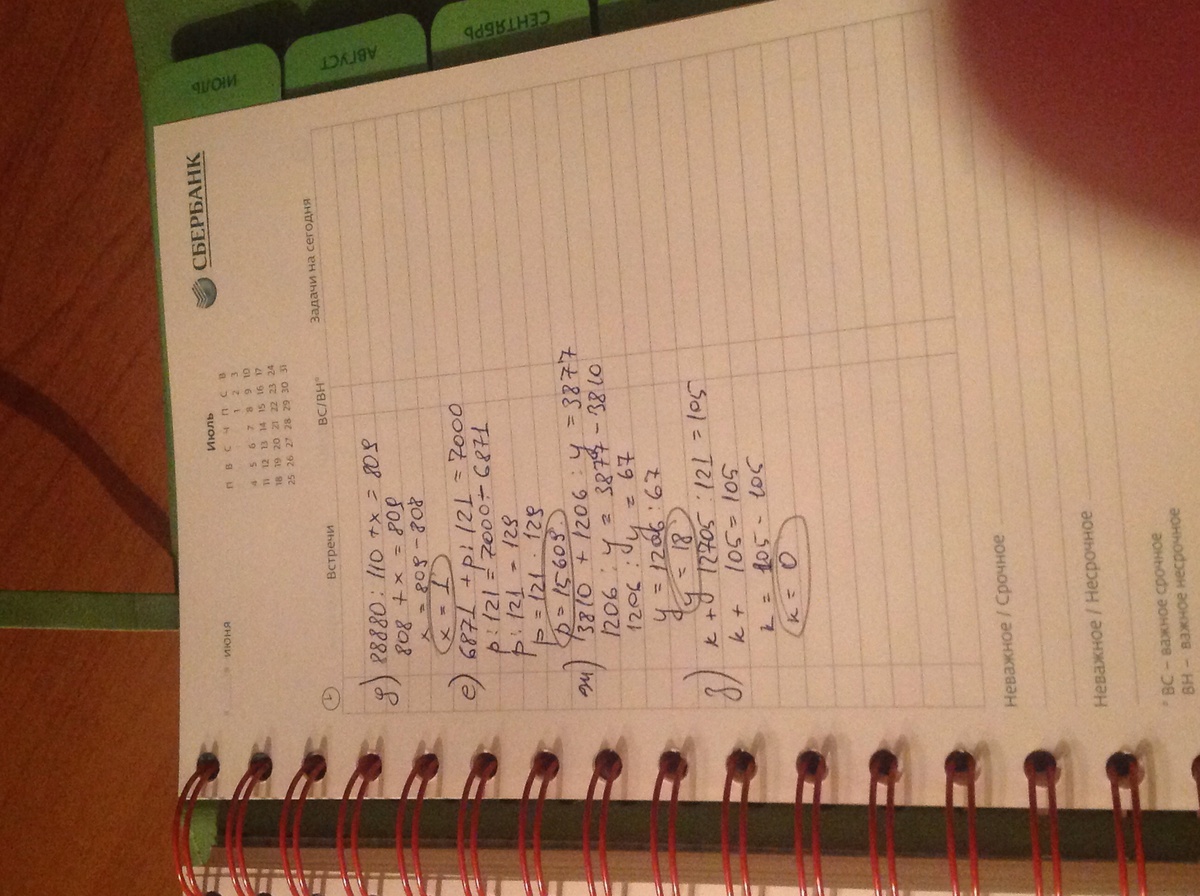 ИЮЛЬ
АВГУСТ
СЕНТЯБРЬ
СБЕРБАНК
ИЮНЯ
Июль
П В С Ч П С В
1 2 3
4 5 6 7 8 9 10
11 12 13 14 15 16 17
18 19 20 21 22 23 24
25 26 27 28 29 30 31
Встречи ВС/ВН* Задачи на сегодня
д) 88880 : 110 + x = 809
808 + x = 809
x = 809 - 808
x = 1
е) 6871 + p : 121 = 7000
p : 121 = 7000 - 6871
p : 121 = 129
p = 121 · 129
p = 15609
ж) 3810 + 1206 : y = 3877
1206 : y = 3877 - 3810
1206 : y = 67
y = 1206 : 67
y = 18
з) k + 12705 : 121 = 105
k + 105 = 105
k = 105 - 105
k = 0
Неважное / Срочное
Неважное / Несрочное
* ВС – важное срочное
ВН – важное несрочное